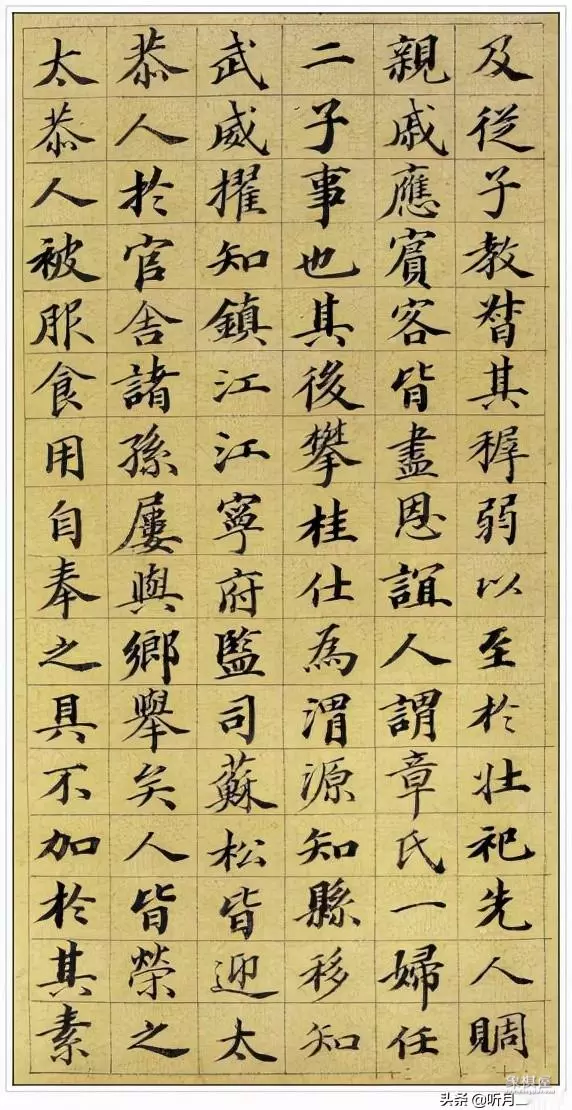 及從子教督其穉弱以至於壯祀先人賙
親戚應賓客皆盡恩誼人謂章氏一婦任
二子事也其後攀桂仕為渭源知縣移知
武威擢知鎮江江寧府監司蘇松皆迎太
恭人於官舍諸孫屢與鄉舉矣人皆榮之
太恭人被服食用自奉之具不加於其素
头条 @听月_